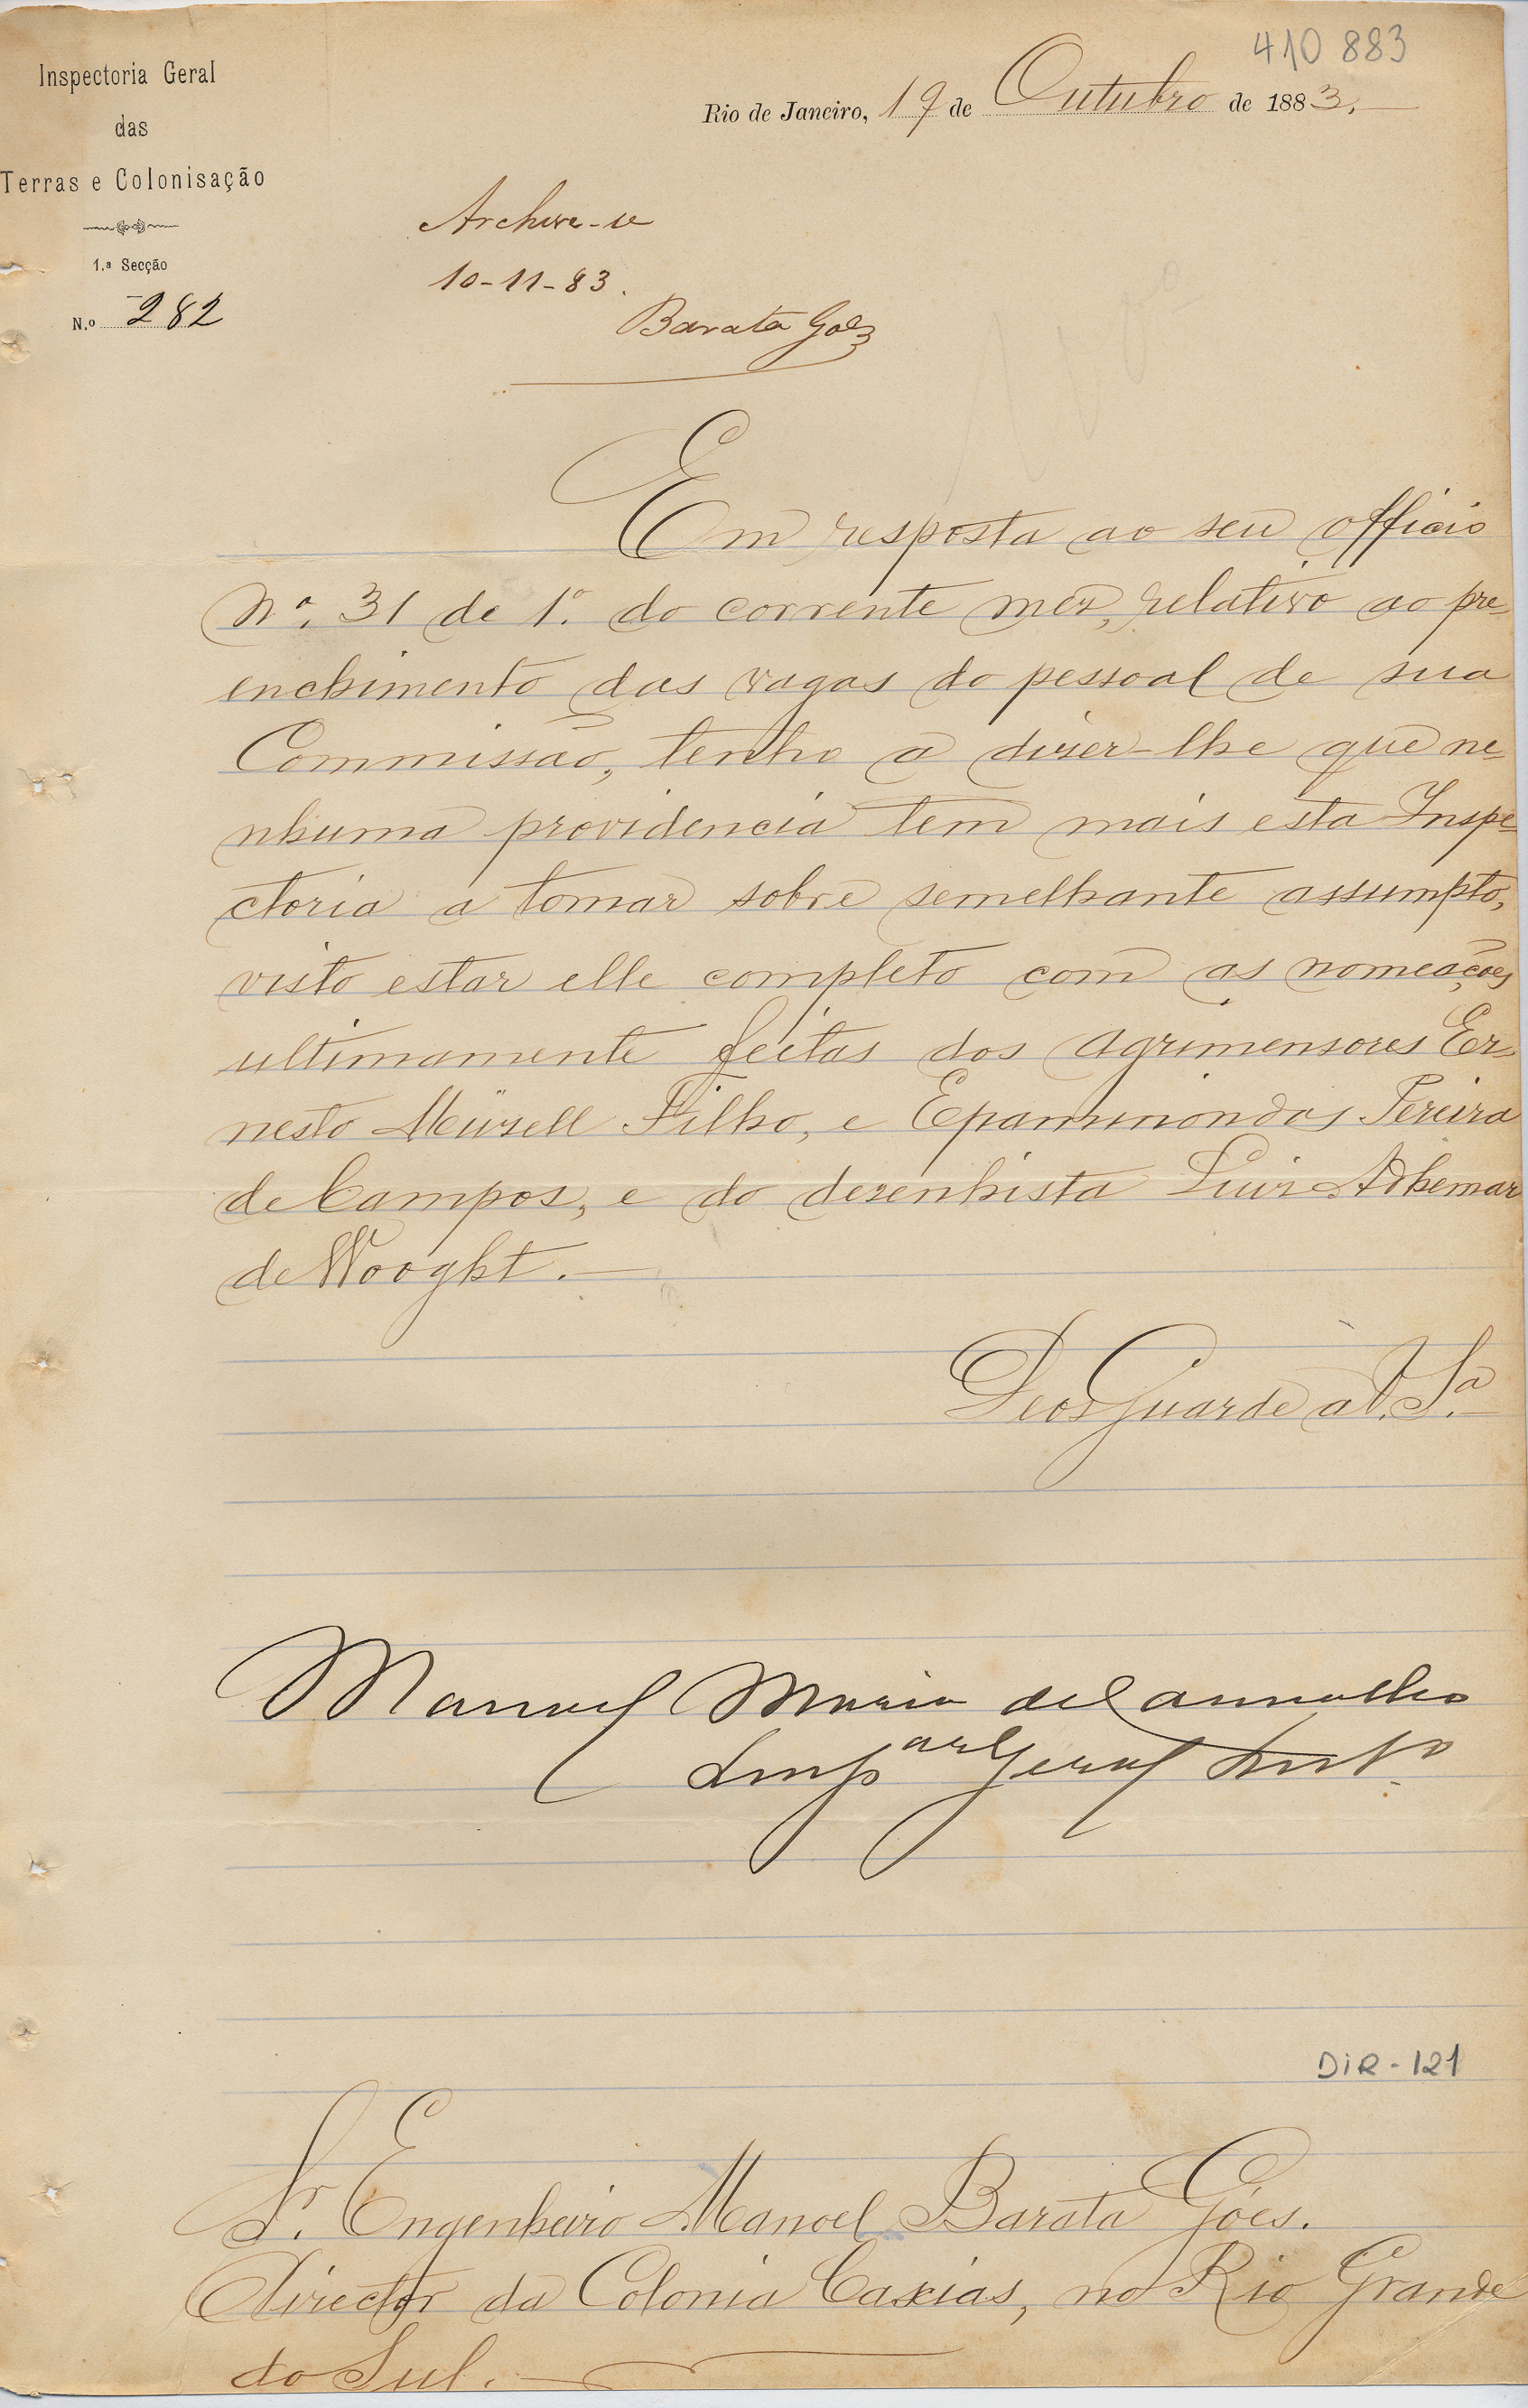 410 883
Inspectoria Geral
das
Terras e Colonisação
1.ª Secção
N.º 282
Rio de Janeiro, 19 de Outubro de 1883.
Archive-se
10-11-83.
Barata Goes
Nº
Em resposta ao seu officio
Nº. 31 de 1º. do corrente mez, relativo ao pre
enchimento das vagas do pessoal de sua
Commissão, tenho a dizer-lhe que ne-
nhuma providencia tem mais esta Inspe-
ctoria a tomar sobre semelhante assumpto,
visto estar elle completo com as nomeações
ultimamente feitas dos agrimensores Er-
nesto Müzell Filho, e Epaminondas Pereira
de Campos, e do dezenhista Luiz Adhemar
de Wooght.
Deos Guarde a V. Sª
Manoel Maria de Carvalho
Insp Geral Into
DIR-121
Sr. Engenheiro Manoel Barata Góes.
Director da Colonia Caxias, no Rio Grande
do Sul.